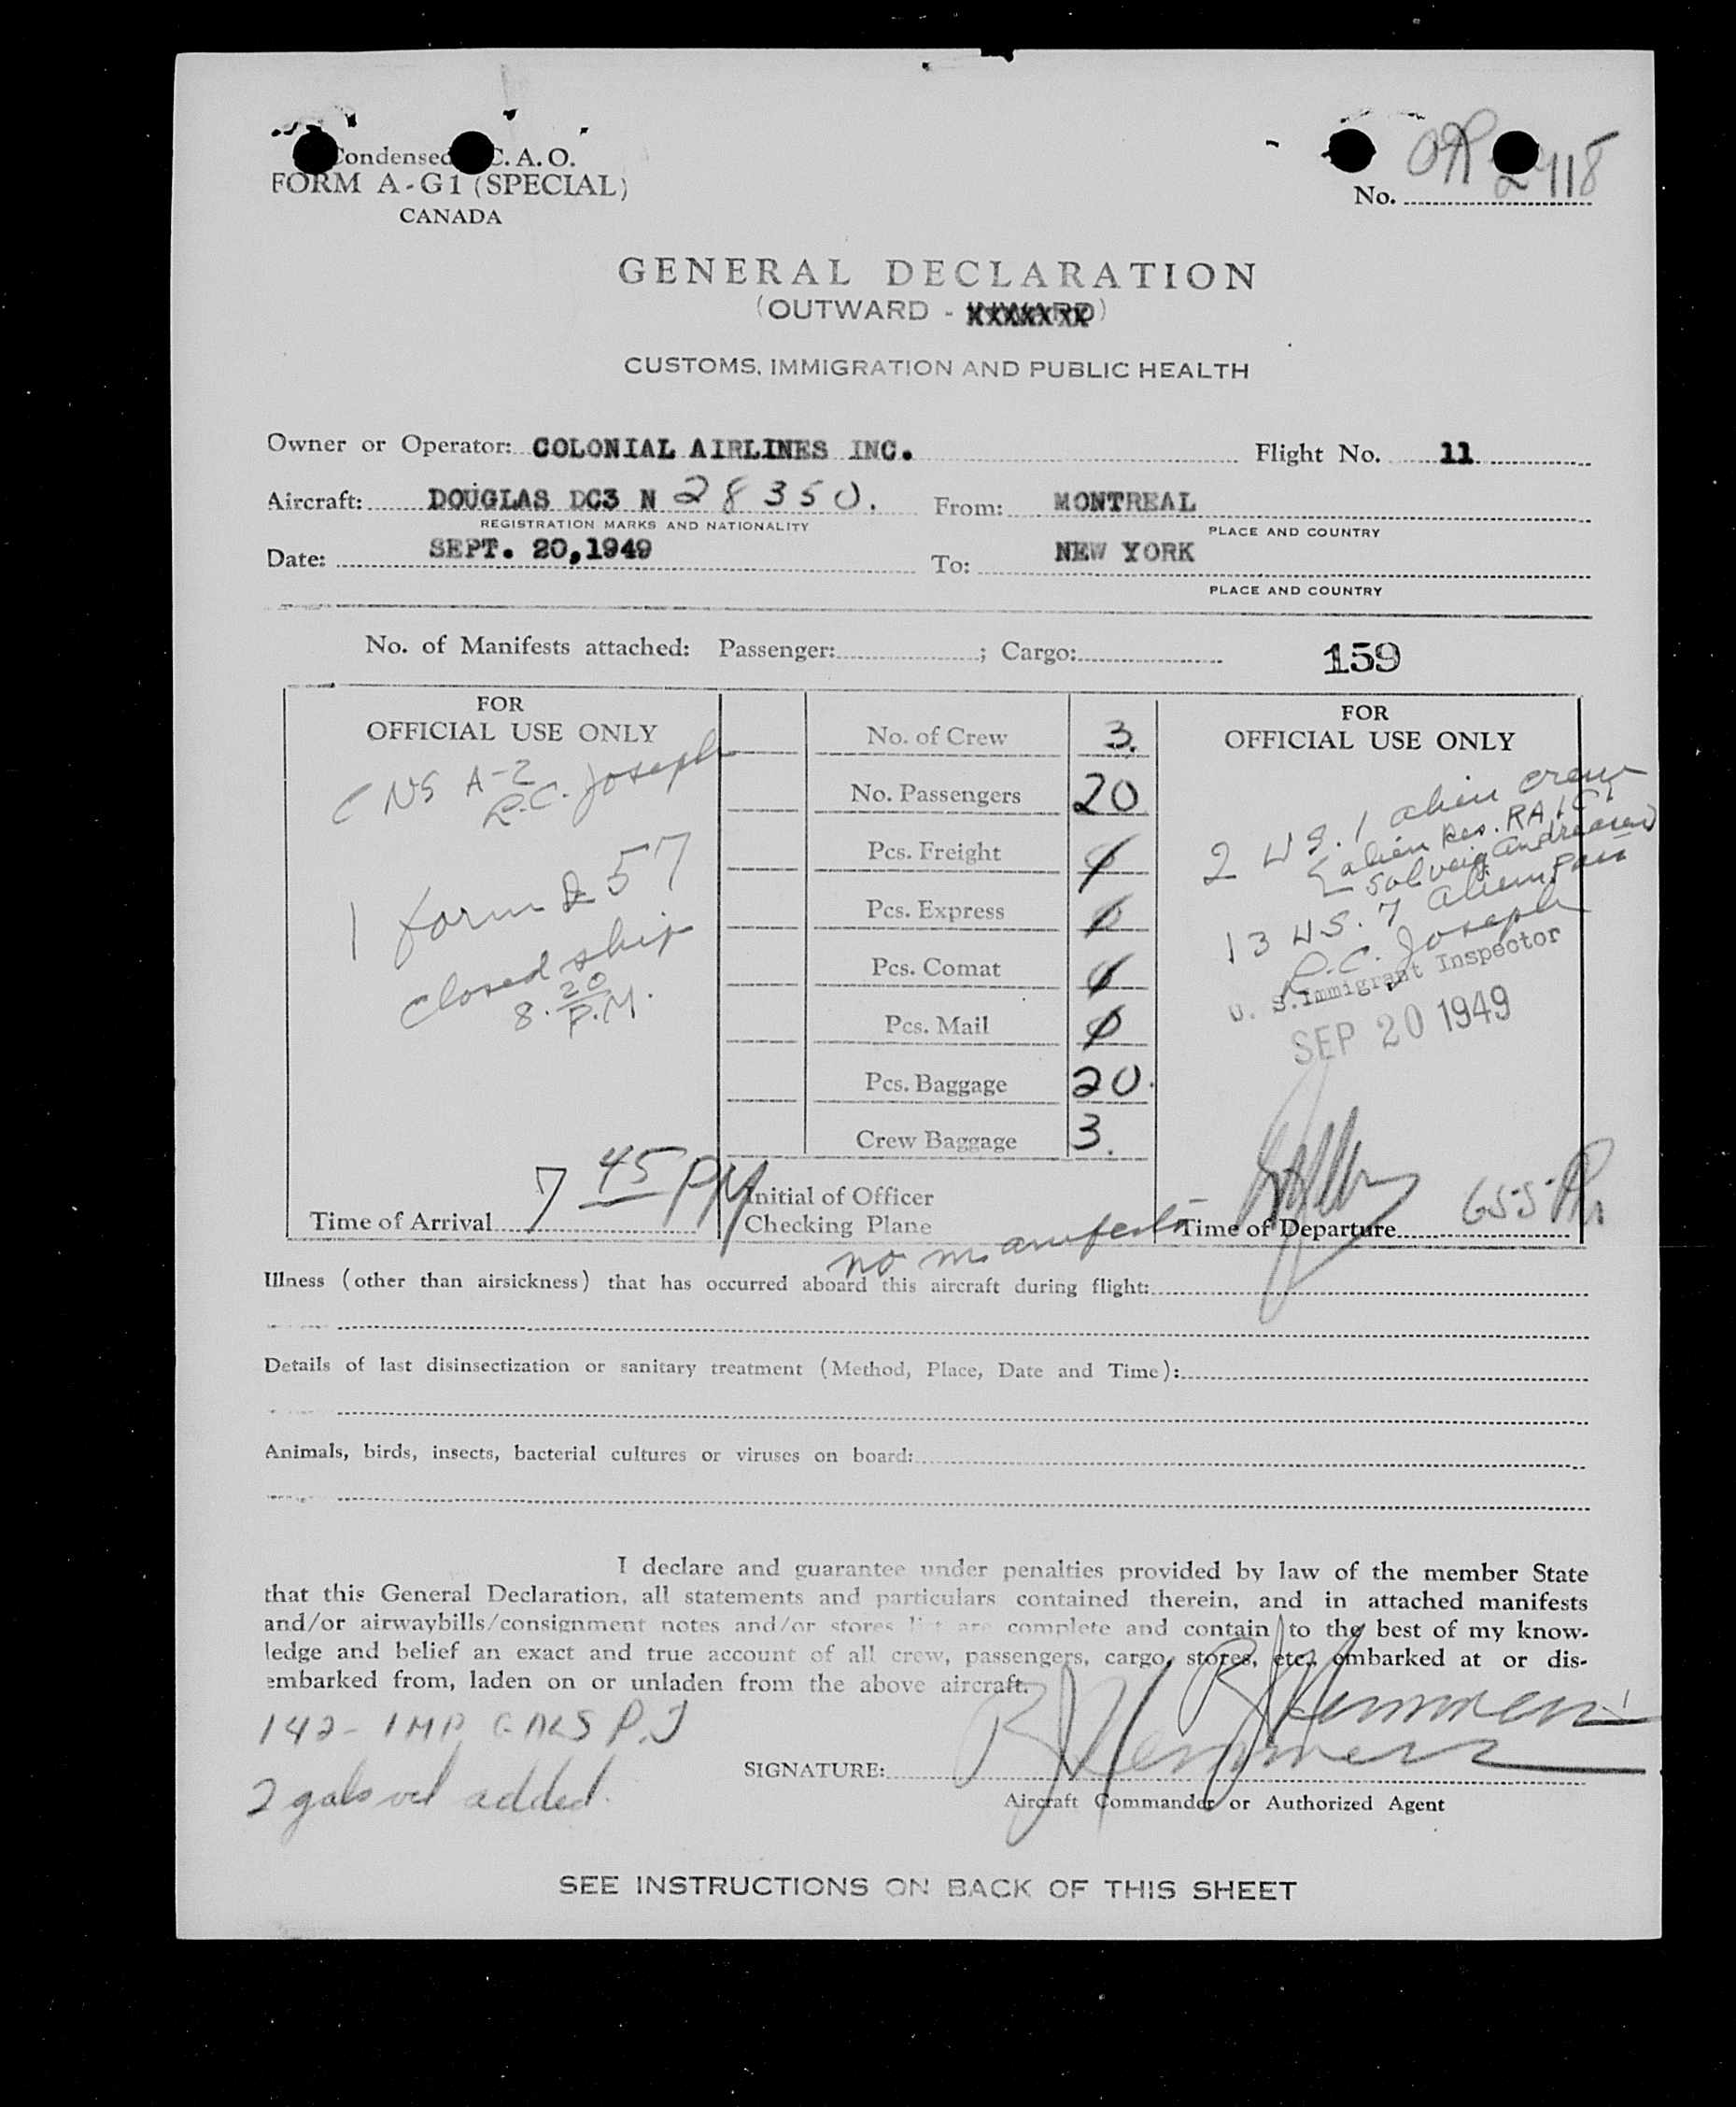 Condensed C. A. O.
FORM A-G1 (SPECIAL)
CANADA
No. 2118
GENERAL DECLARATION
(OUTWARD - XXXXXXX)
CUSTOMS, IMMIGRATION AND PUBLIC HEALTH
Owner or Operator: COLONIAL AIRLINES INC. Flight No. 11
Aircraft: DOUGLAS DC3 N 28350. From: MONTREAL
REGISTRATION MARKS AND NATIONALITY PLACE AND COUNTRY
Date: SEPT. 20,1949 To: NEW YORK
PLACE AND COUNTRY
No. of Manifests attached: Passenger: ; Cargo: 159
FOR
OFFICIAL USE ONLY
CNS A-2
R.C. Joseph
1 form 257
closed ship
8.20
P.M.
Time of Arrival 7 45 PM
No. of Crew 3.
No. Passengers 20
Pcs. Freight
Pcs. Express
Pcs. Comat
Pcs. Mail
Pcs. Baggage 20.
Crew Baggage 3.
Initial of Officer
Checking Plane
FOR
OFFICIAL USE ONLY
2 US. 1 alien crew
alien Res. RA
Solveig Andreasen
13 US. 7 alien Pass
R.C. Joseph
U. S. Immigrant Inspector
SEP 20 1949
Time of Departure 655 Pm
no manifests
Illness (other than airsickness) that has occurred aboard this aircraft during flight:
Details of last disinsectization or sanitary treatment (Method, Place, Date and Time):
Animals, birds, insects, bacterial cultures or viruses on board:
I declare and guarantee under penalties provided by law of the member State
that this General Declaration, all statements and particulars contained therein, and in attached manifests
and/or airwaybills/consignment notes and/or stores list are complete and contain to the best of my know-
ledge and belief an exact and true account of all crew, passengers, cargo, stores, etc. embarked at or dis-
embarked from, laden on or unladen from the above aircraft.
142 - IMP GALS P.J
2 gals oil added.
SIGNATURE:
Aircraft Commander or Authorized Agent
SEE INSTRUCTIONS ON BACK OF THIS SHEET